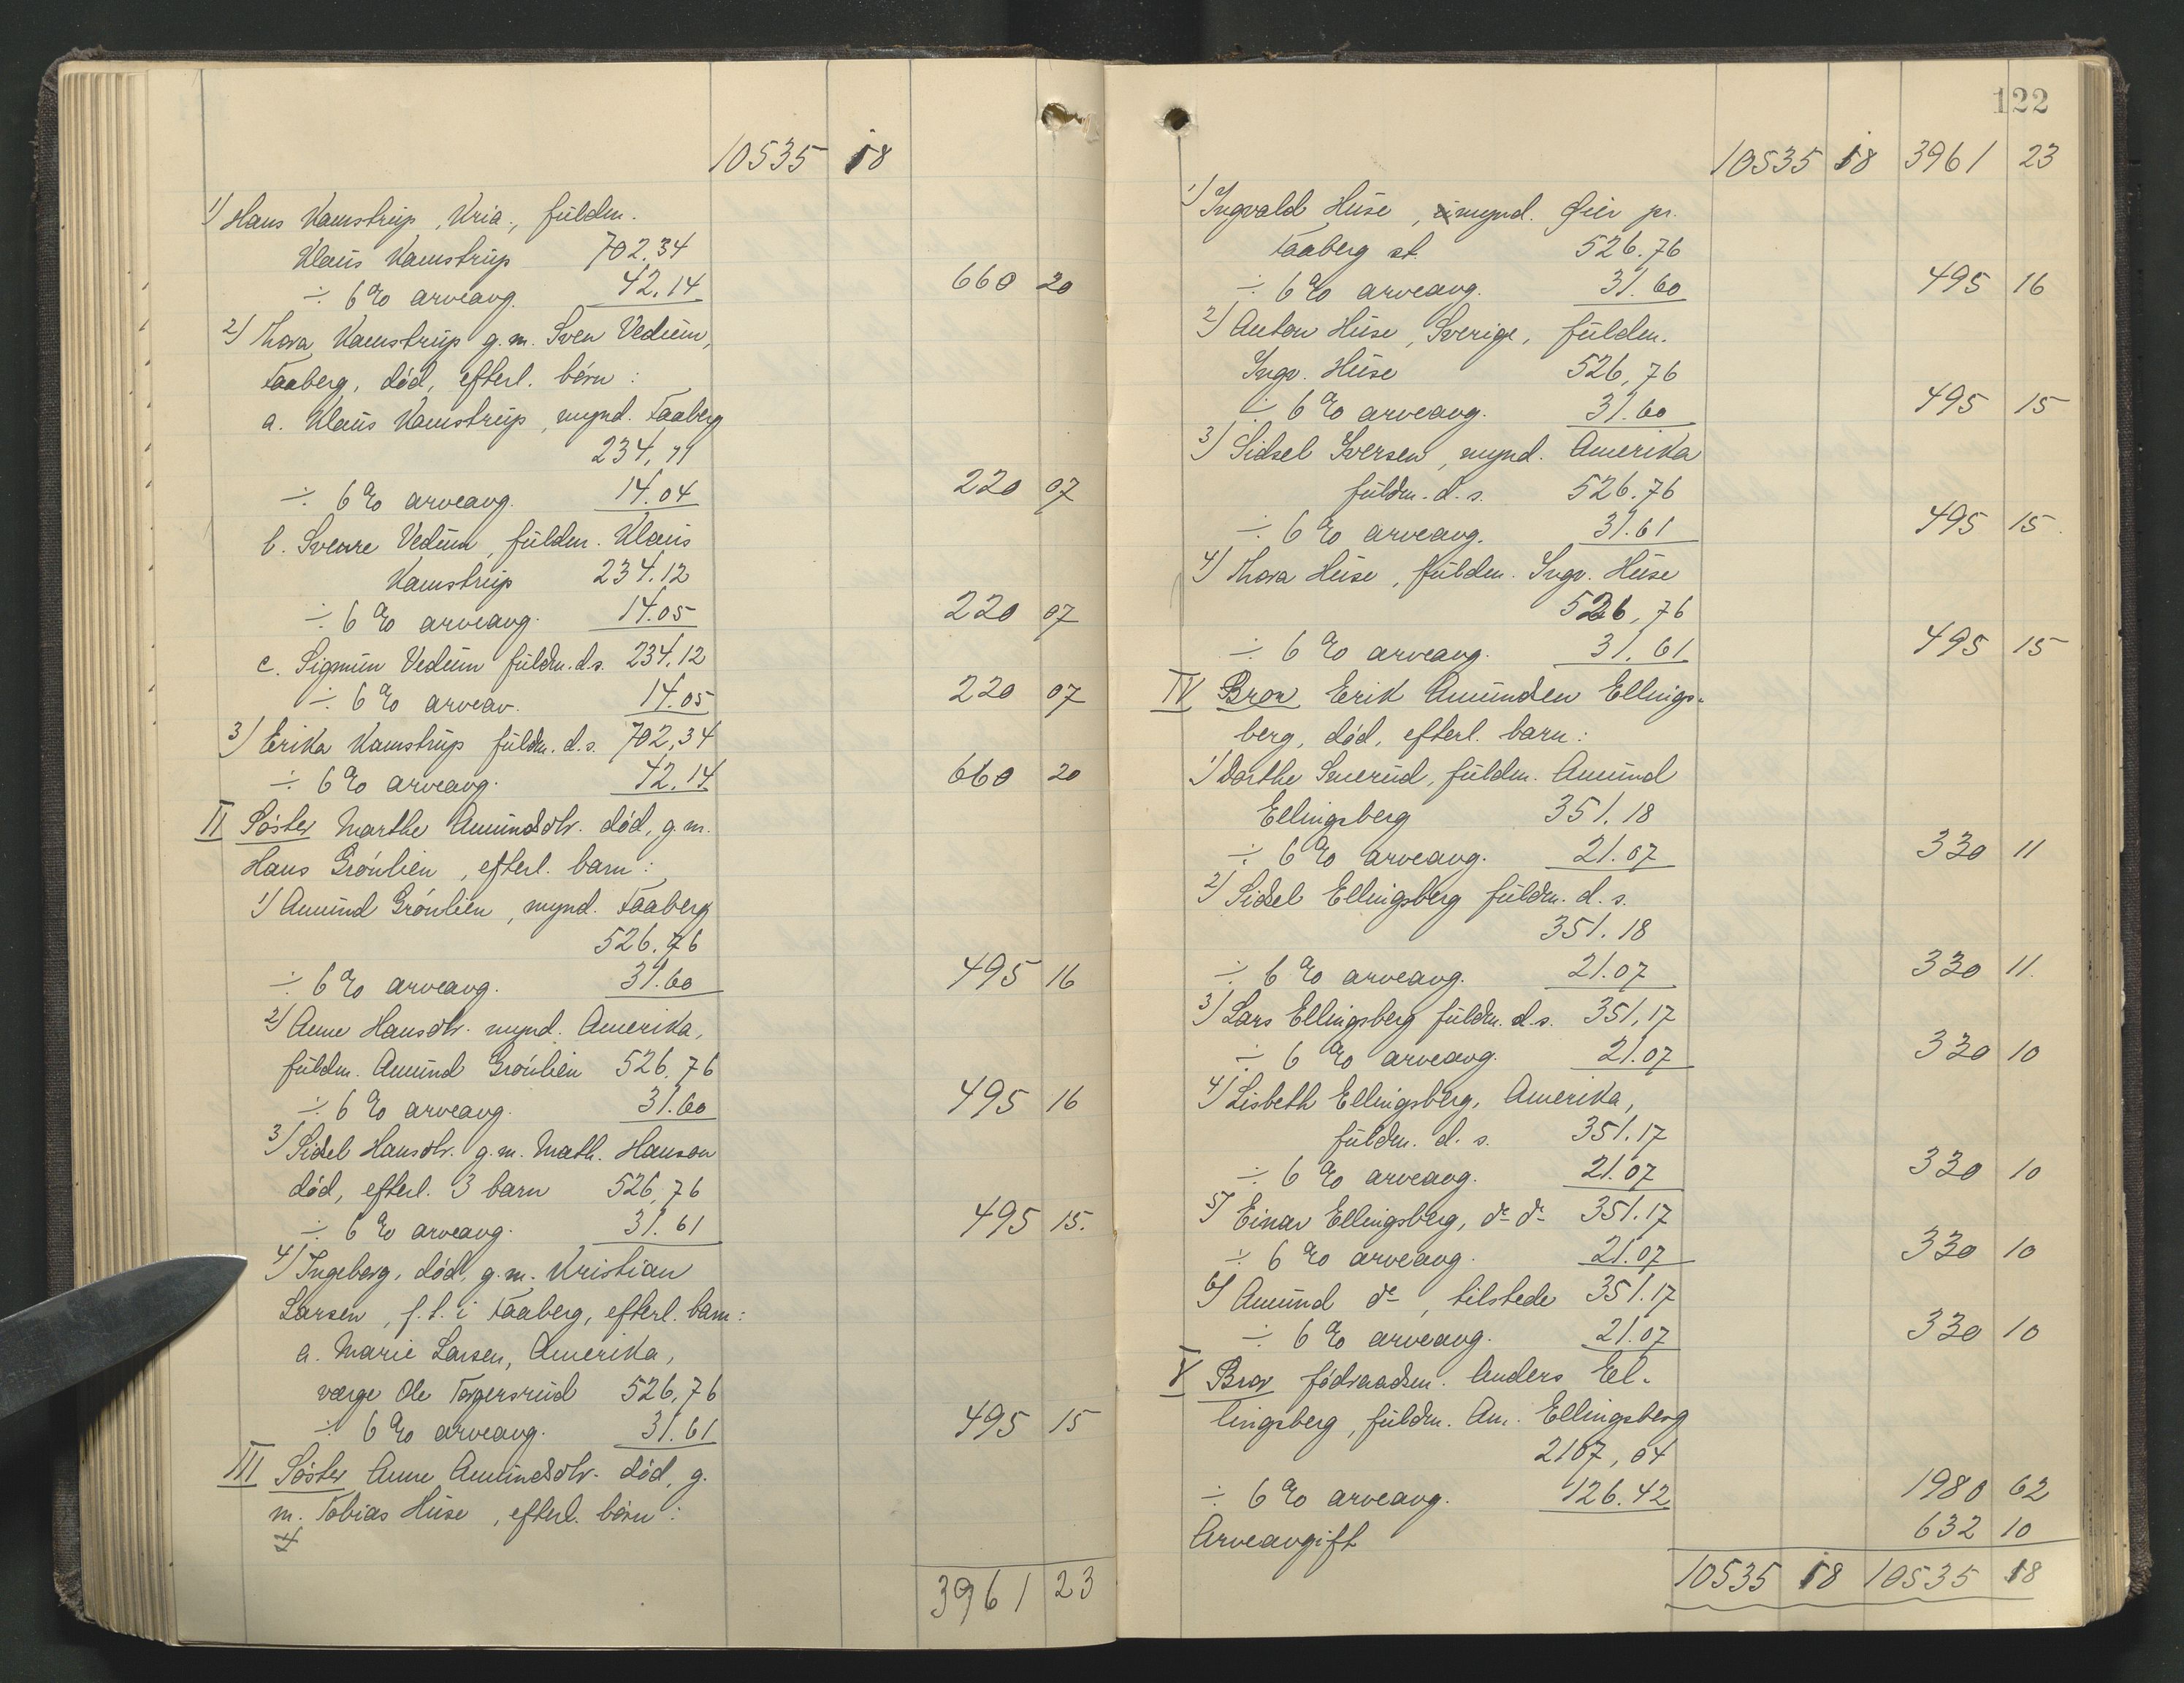 10535 18
1) Hans Kamstrup, Kria., fuldm.
Klaus Kamstrup 702.34
÷ 6% arveavg. 42.14 660 20
2) Thora Kamstrup g.m. Sven Vedum,
Faaberg, död, efterl. börn:
a. Klaus Kamstrup, mynd. Faaberg
234,11
÷ 6% arveavg. 14.04 220 07
b. Sverre Vedum, fuldm. Klaus
Kamstrup 234.12
÷ 6% arveavg. 14.05 220 07
c. Sigmun Vedum fuldm. d.s. 234.12
÷ 6% arveav. 14.05 220 07
3) Erika Kamstrup fuldm. d.s. 702,34
÷ 6% arveavg. 42.14 660 20
II Söster Marthe Amundsdtr. död, g.m.
Hans Grönlien, efterl. barn:
1) Amund Grönlien, mynd. Faaberg
526.76
÷ 6% arveavg. 31.60 495 16
2) Anne Hansdtr. mynd. Amerika,
fuldm. Amund Grönlien 526.76
÷ 6% arveavg. 31.60 495 16
3) Sidsel Hansdtr. g.m. Math. Hanson
död, efterl. 3 barn 526,76
÷ 6% arveavg. 31.61 495 15.
4) Ingeborg, död, g.m. Kristian
Larsen, f.t. i Faaberg, efterl. barn:
a. Marie Larsen, Amerika,
værge Ole Torgersrud 526,76
÷ 6% arveavg. 31.61 495 15
III Söster Anne Amundsdtr. död, g.
m. Tobias Huse, efterl. börn:
3961 23
122
10535 18 3961 23
1) Ingvald Huse, mynd. Öier pr.
Faaberg st. 526.76
÷ 6% arveavg. 31.60 495 16
2) Anton Huse, Sverige, fuldm.
Ingv. Huse 526,76
÷ 6% arveavg. 31.60 495 15
3) Sidsel Iversen, mynd. Amerika
fuldm. d.s. 526.76
÷ 6% arveavg. 31.61 495 15.
4) Thora Huse, fuldm. Ingv. Huse
526,76
÷ 6% arveavg. 31.61 495 15
IV Bror Erik Amundsen Ellings-
berg, död, efterl. barn:
1) Dorthe Smerud, fuldm. Amund
Ellingsberg 351.18
÷ 6% arveavg. 21.07 330 11
2) Sidsel Ellingsberg fuldm. d.s.
351.18
÷ 6% arveavg. 21.07 330 11.
3) Lars Ellingsberg fuldm. d.s. 351,17
÷ 6% arveavg. 21.07 330 10
4) Lisbeth Ellingsberg, Amerika,
fuldm. d.s. 351.17
÷ 6% arveavg. 21.07 330 10
5) Einar Ellingsberg, do do 351.17
÷ 6% arveavg. 21.07 330 10
6) Amund do, tilstede 351.17
÷ 6% arveavg. 21.07 330 10
V Bror födraadsm. Anders El-
lingsberg, fuldm. Am. Ellingsberg
2107,04
÷ 6% arveavg. 126.42 1980 62
Arveavgift 632 10
10535 18 10535 18